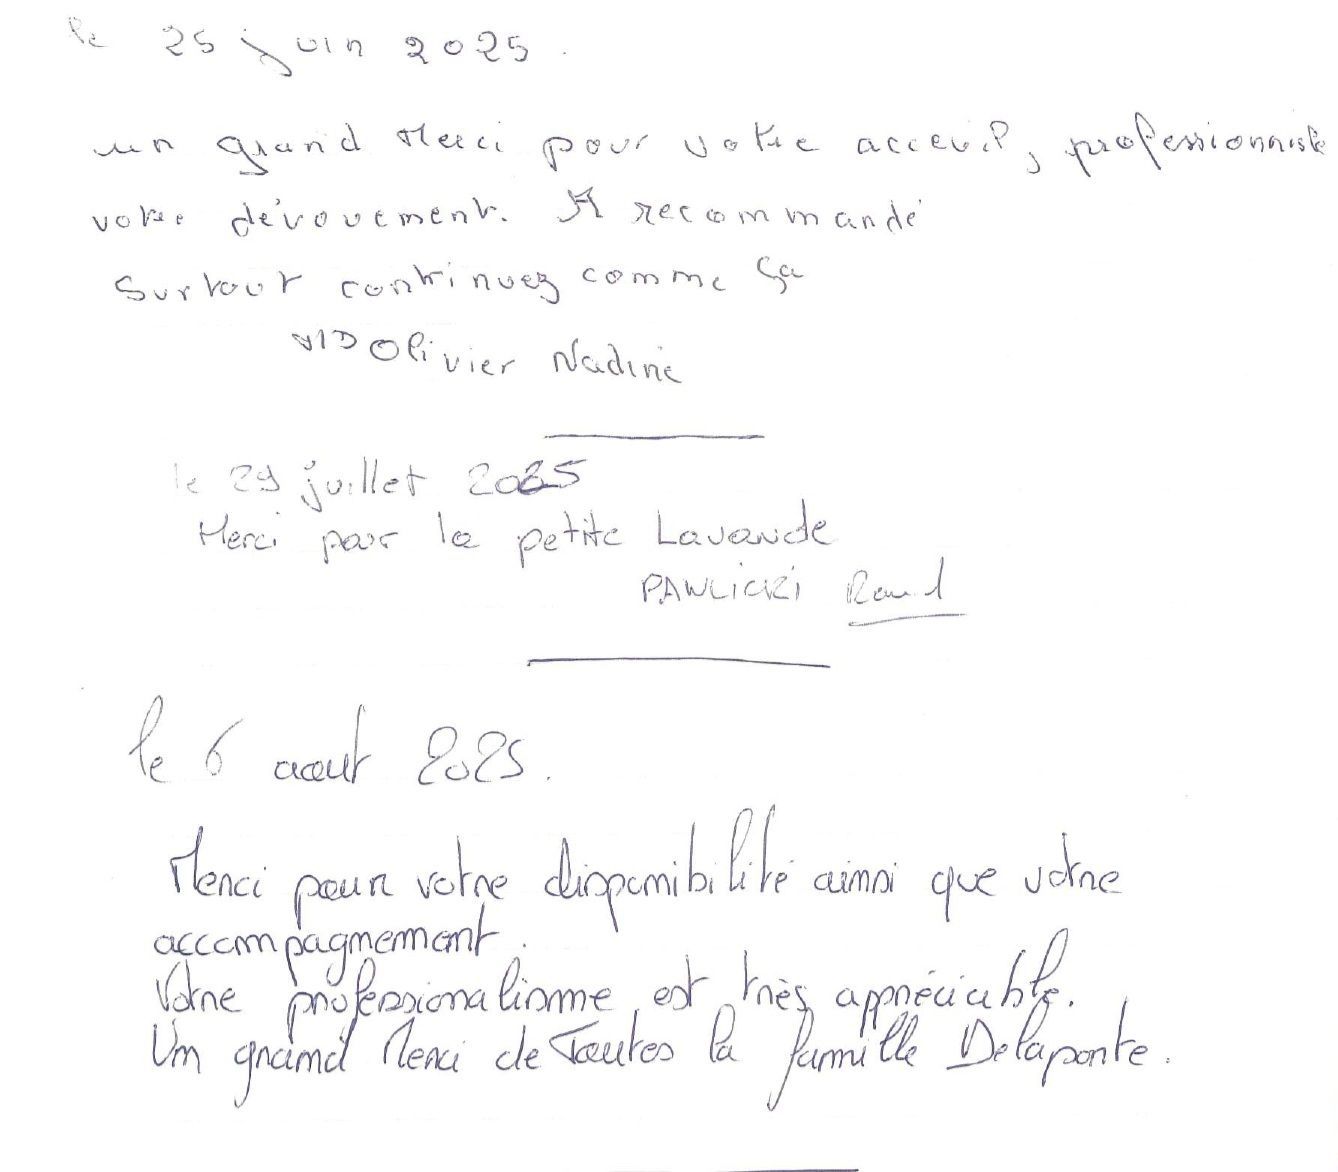 le 25 juin 2025.
un grand Merci pour votre acceuil, professionniste
votre dévouement. A recommandé
Surtout continuez comme ça
Olivier Nadine
le 29 juillet 2025
Merci pour la petite Lavande
PAWLICKI
le 6 aout 2025.
Merci pour votre disponibilité ainsi que votre
accompagnement.
Votre professionalisme est très appréciable.
Un grand Merci de Toutes la famille Delaporte.